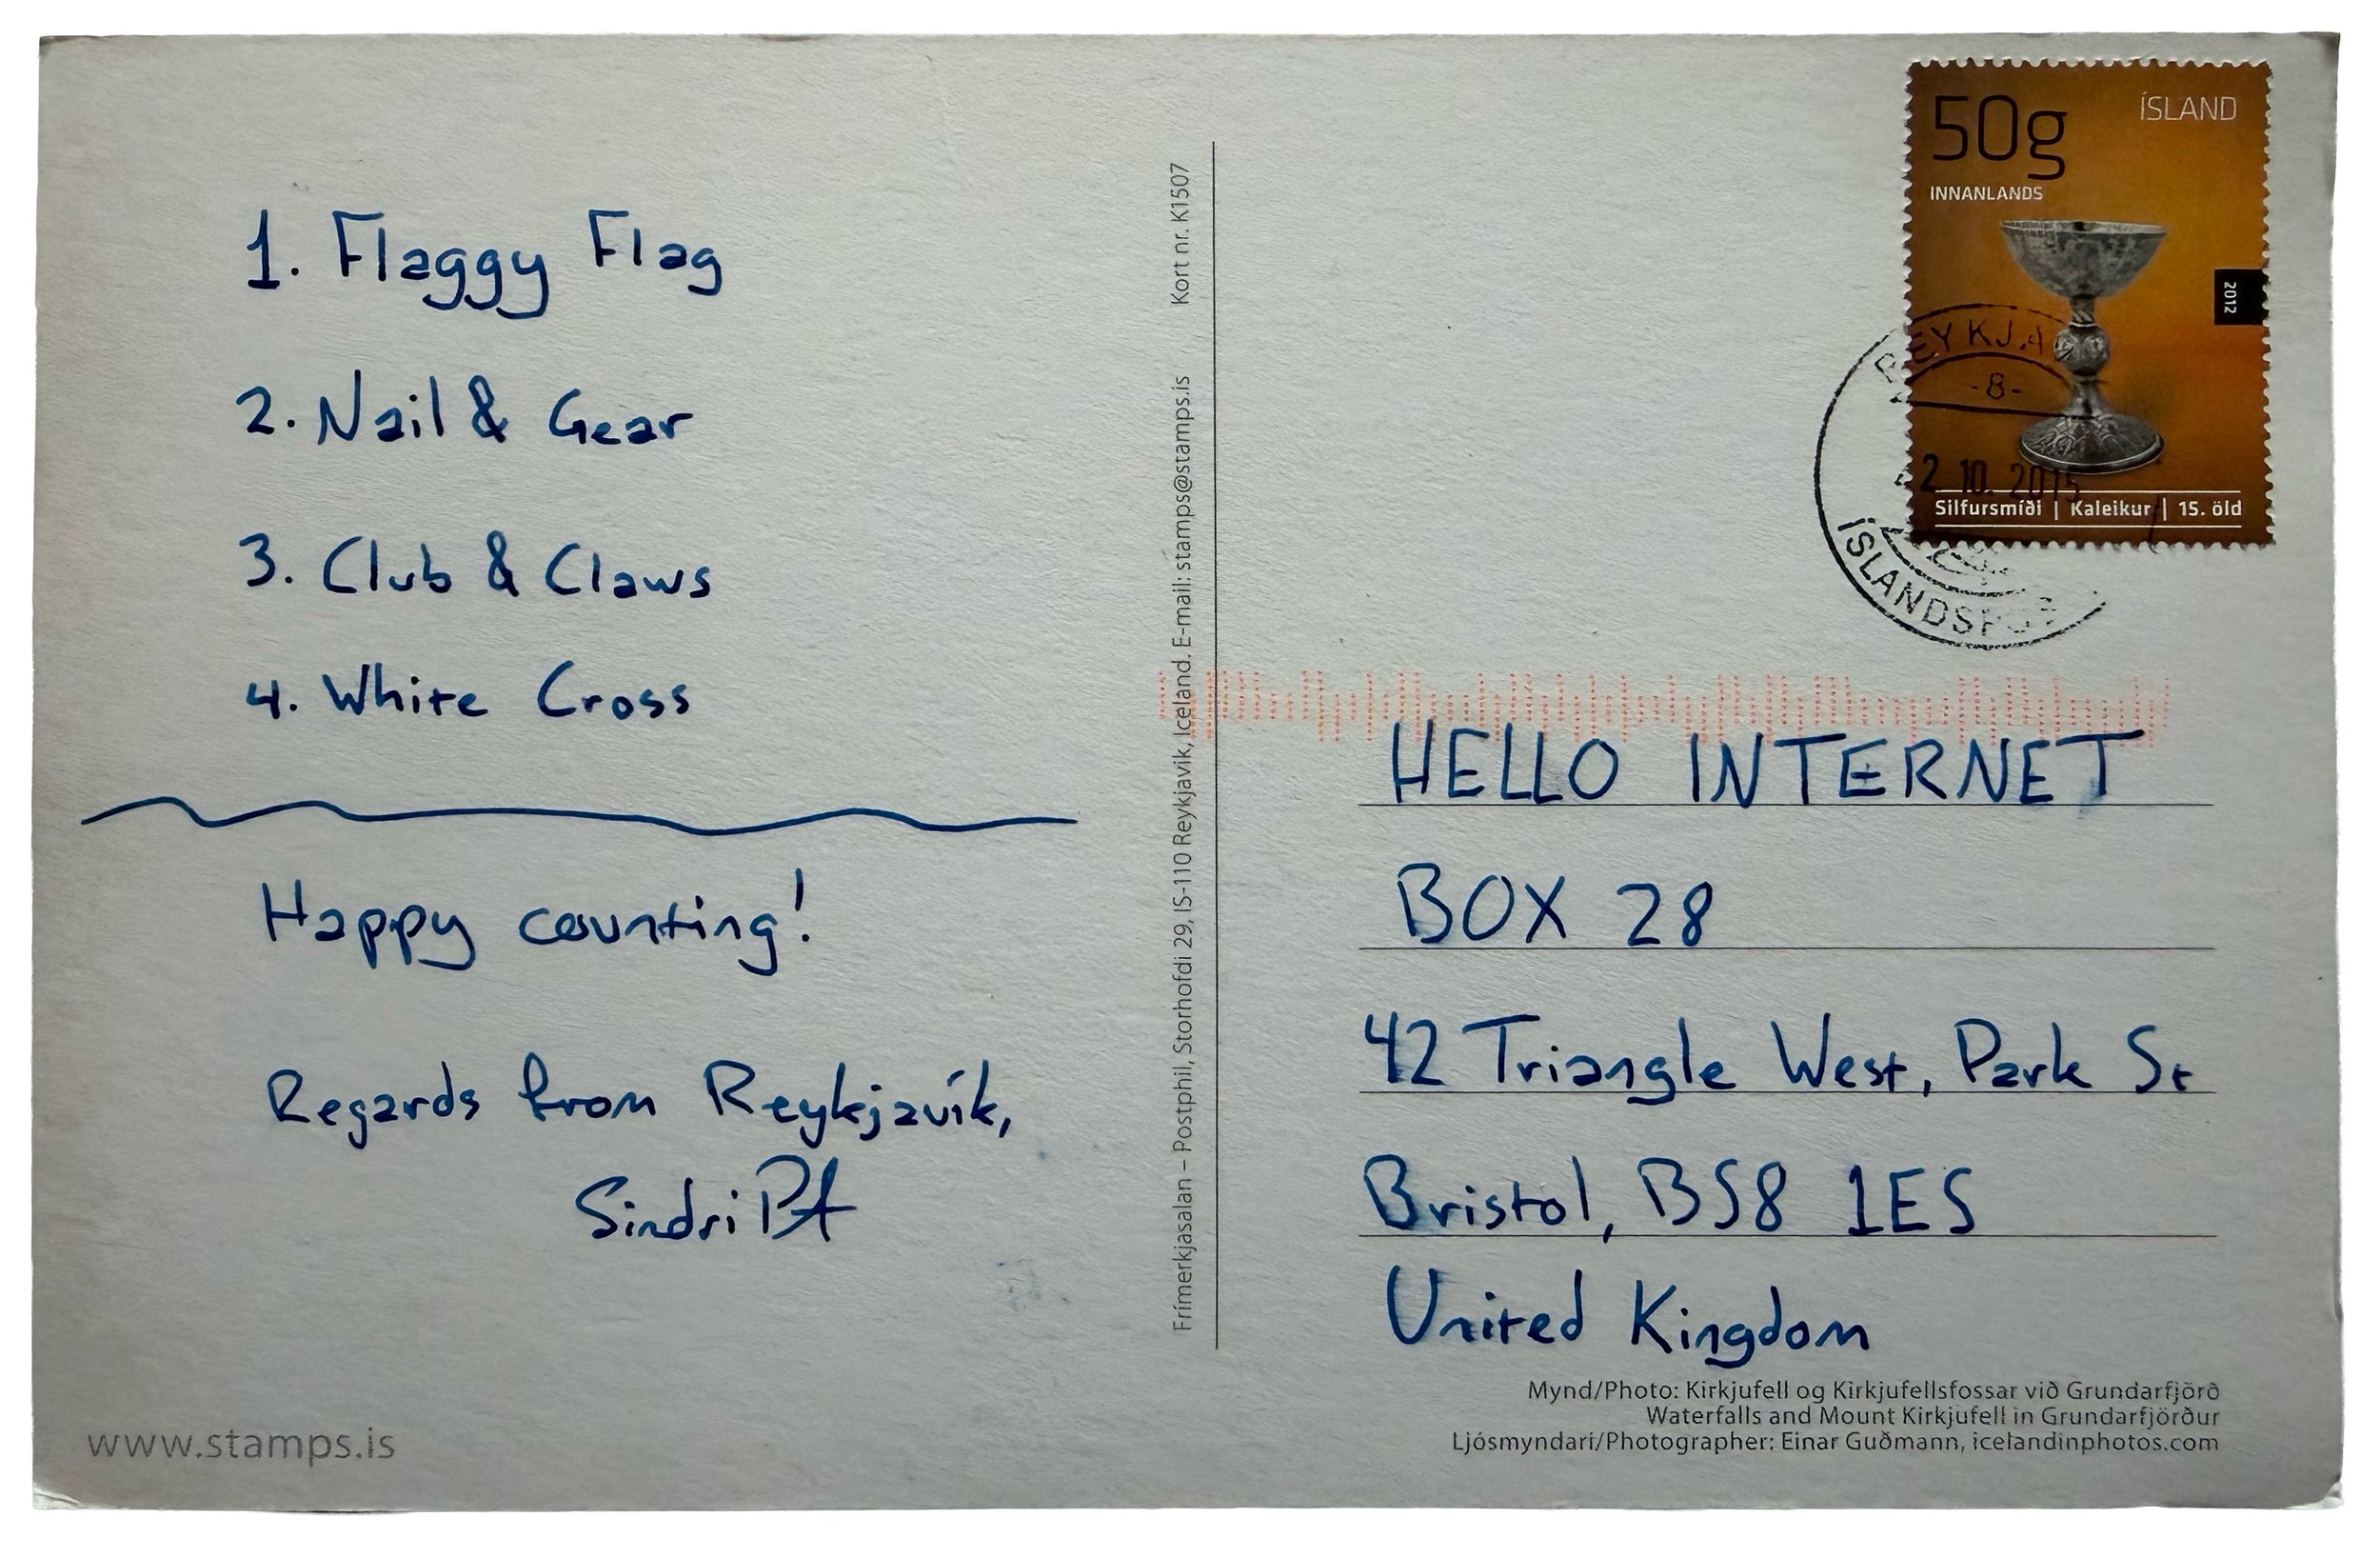 1. Flaggy Flag
2. Nail & Gear
3. Club & Claws
4. White Cross
Happy counting!
Regards from Reykjavík,
Sindri
www.stamps.is
Frímerkjasalan – Postphil, Storhofdi 29, IS-110 Reykjavik, Iceland. E-mail: stamps@stamps.is Kort nr. K1507
50g
ÍSLAND
INNANLANDS
2012
Silfursmíði | Kaleikur | 15. öld
-8-
10. 2015
HELLO INTERNET
BOX 28
42 Triangle West, Park St
Bristol, BS8 1ES
United Kingdom
Mynd/Photo: Kirkjufell og Kirkjufellsfossar við Grundarfjörð
Waterfalls and Mount Kirkjufell in Grundarfjörður
Ljósmyndari/Photographer: Einar Guðmann, icelandinphotos.com